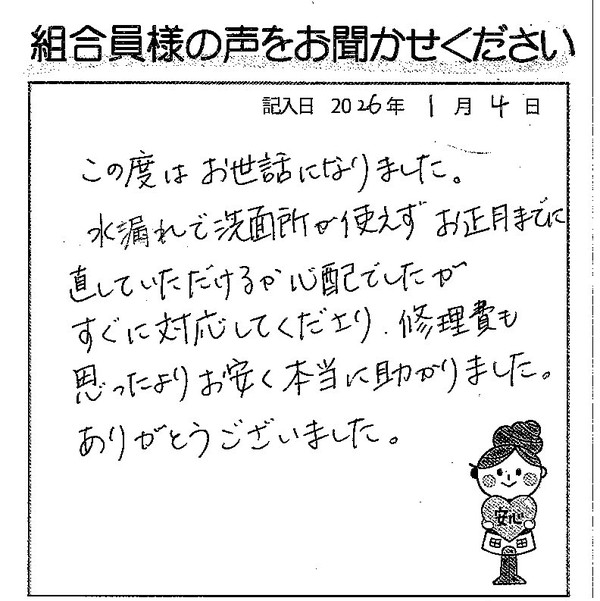 組合員様の声をお聞かせください
記入日 2026年 1月 4日
この度は お世話になりました。
水漏れで洗面所が使えず お正月までに
直していただけるか心配でしたが
すぐに対応してくださり、修理費も
思ったよりお安く本当に助かりました。
ありがとうございました。
安心